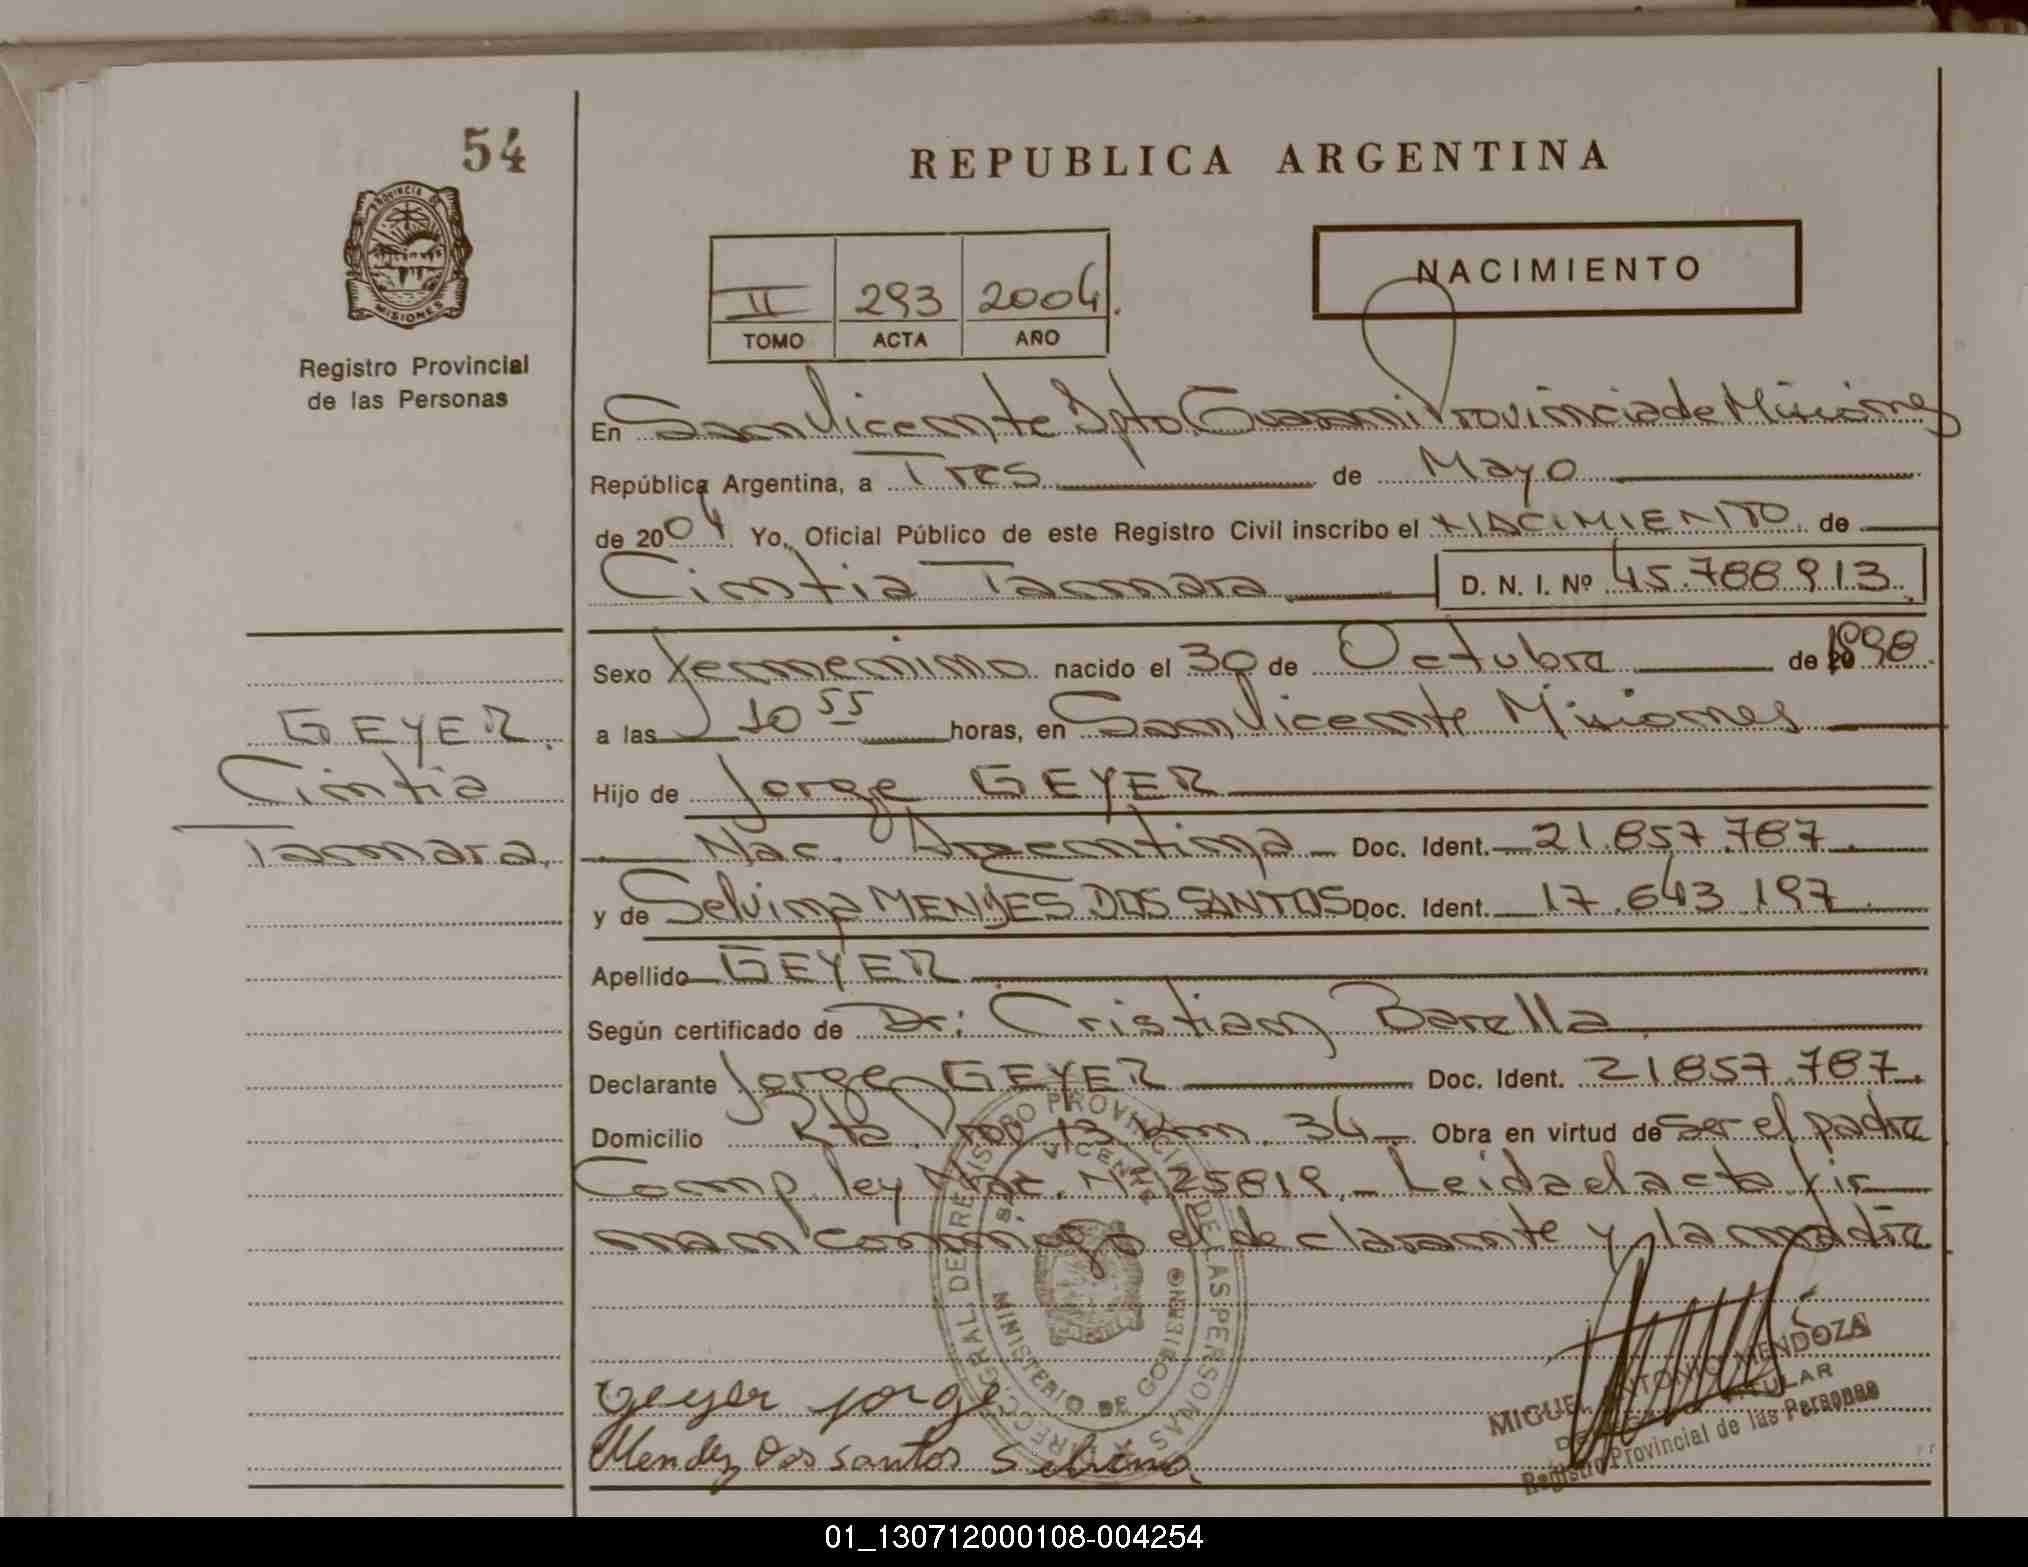 54
REPUBLICA ARGENTINA
PROVINCIA DE
MISIONES
Registro Provincial
de las Personas
II 293 2004.
TOMO ACTA AÑO
NACIMIENTO
En San Vicente Dpto Guarani Provincia de Misiones
República Argentina, a Tres de Mayo
de 2004 Yo, Oficial Público de este Registro Civil inscribo el NACIMIENTO de
Cintia Tamara D. N. I. Nº 45.788.913.
Sexo femenino nacido el 30 de Octubre de 1998.
a las 10 55 horas, en San Vicente Misiones
GEYER.
Cintia
Tamara.
Hijo de Jorge GEYER
Nac. Argentina Doc. Ident. 21.857.787.
y de Selvina MENDES DOS SANTOS Doc. Ident. 17.643.197.
Apellido GEYER
Según certificado de Dr: Cristian Barella
Declarante Jorge GEYER Doc. Ident. 21857.787.
Domicilio Rta Prov 13 Km. 34 Obra en virtud de ser el padre
Comp. ley Nac. Nº 25819.- Leida el acta fir
man conmigo el declarante y la madre
DIRECC. GRAL. DE REGISTRO PROVINCIAL DE LAS PERSONAS
S. VICENTE
MINISTERIO DE GOBIERNO
Geyer jorge
Mendez Dos santos Selvina
MIGUEL ANTONIO MENDOZA
TITULAR
Registro Provincial de las Personas
01_130712000108-004254